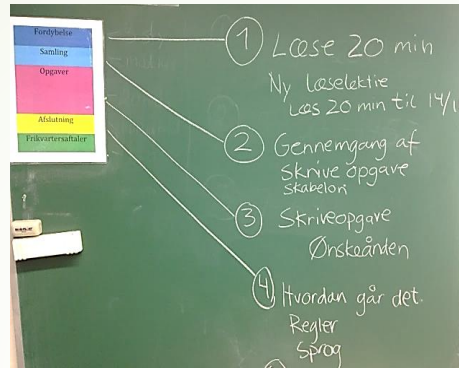 Fordybelse
Samling
Opgaver
Afslutning
Frikvartersaftaler
1 Læse 20 min
Ny læselektie
Læs 20 min til 14/1
2 Gennemgang af
Skrive opgave
skabelon
3 Skriveopgave
Ønskeånden
4 Hvordan går det.
Regler
Sprog